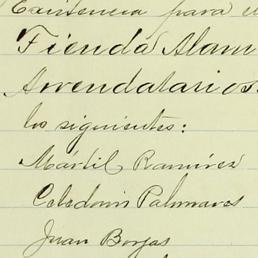 Existencia para e
Tienda Alam
Arrendatarios.
los siguientes:
Martil Ramirez
Celedonis Palomares
Juan Borjas